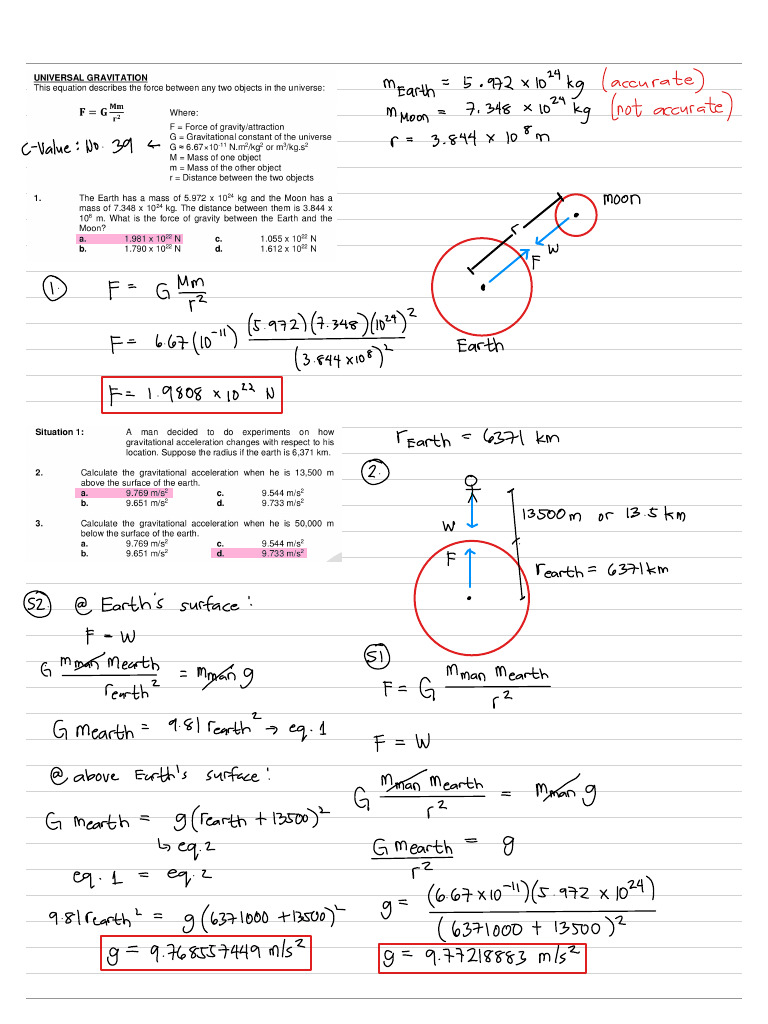 UNIVERSAL GRAVITATION
This equation describes the force between any two objects in the universe:
F = G Mm/r²
Where:
F = Force of gravity/attraction
G = Gravitational constant of the universe
G ≈ 6.67×10⁻¹¹ N.m²/kg² or m³/kg.s²
M = Mass of one object
m = Mass of the other object
r = Distance between the two objects
C-Value: No. 39 ←
m Earth = 5.972 × 10²⁴ kg (accurate)
m Moon = 7.348 × 10²⁴ kg (not accurate)
r = 3.844 × 10⁸ m
1. The Earth has a mass of 5.972 x 10²⁴ kg and the Moon has a
mass of 7.348 x 10²⁴ kg. The distance between them is 3.844 x
10⁸ m. What is the force of gravity between the Earth and the
Moon?
a. 1.981 x 10²² N c. 1.055 x 10²² N
b. 1.790 x 10²² N d. 1.612 x 10²² N
moon
r
W
F
Earth
1. F = G Mm/r²
F = 6.67(10⁻¹¹) (5.972)(7.348)(10²⁴)²/(3.844 × 10⁸)²
F = 1.9808 × 10²² N
Situation 1: A man decided to do experiments on how
gravitational acceleration changes with respect to his
location. Suppose the radius if the earth is 6,371 km.
2. Calculate the gravitational acceleration when he is 13,500 m
above the surface of the earth.
a. 9.769 m/s² c. 9.544 m/s²
b. 9.651 m/s² d. 9.733 m/s²
3. Calculate the gravitational acceleration when he is 50,000 m
below the surface of the earth.
a. 9.769 m/s² c. 9.544 m/s²
b. 9.651 m/s² d. 9.733 m/s²
r Earth = 6371 km
2.
W
13500 m or 13.5 km
F
r earth = 6371 km
S2 @ Earth's surface:
F = W
G m man m earth/r earth² = m man g
G m earth = 9.81 r earth² → eq. 1
@ above Earth's surface:
G m earth = g(r earth + 13500)²
↳ eq. 2
eq. 1 = eq. 2
9.81 r earth² = g(6371000 + 13500)²
g = 9.768557449 m/s²
S1
F = G m man m earth/r²
F = W
G m man m earth/r² = m man g
G m earth/r² = g
g = (6.67 × 10⁻¹¹)(5.972 × 10²⁴)/(6371000 + 13500)²
g = 9.77218883 m/s²